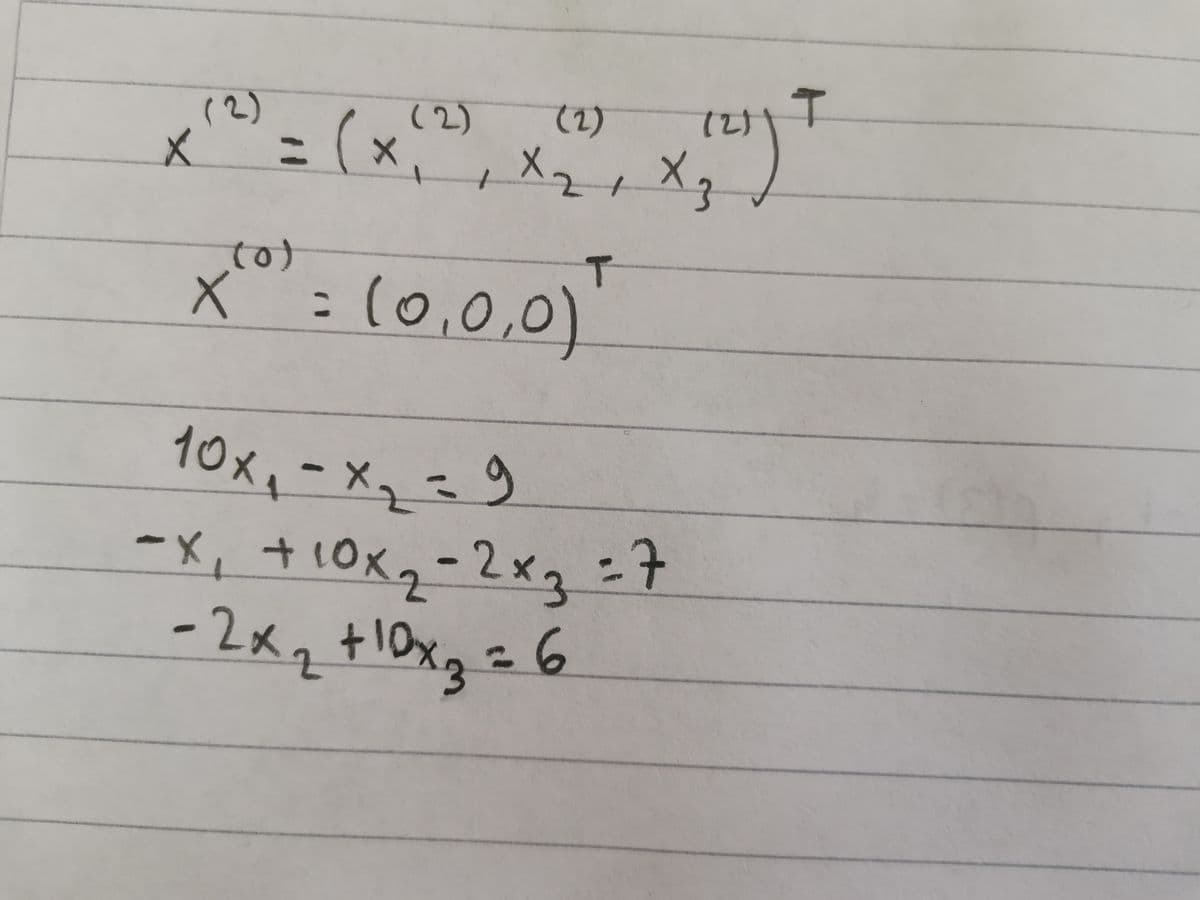 x^(2) = (x_1^(2), x_2^(2), x_3^(2))^T
x^(0) = (0,0,0)^T
10x_1 - x_2 = 9
-x_1 + 10x_2 - 2x_3 = 7
-2x_2 + 10x_3 = 6